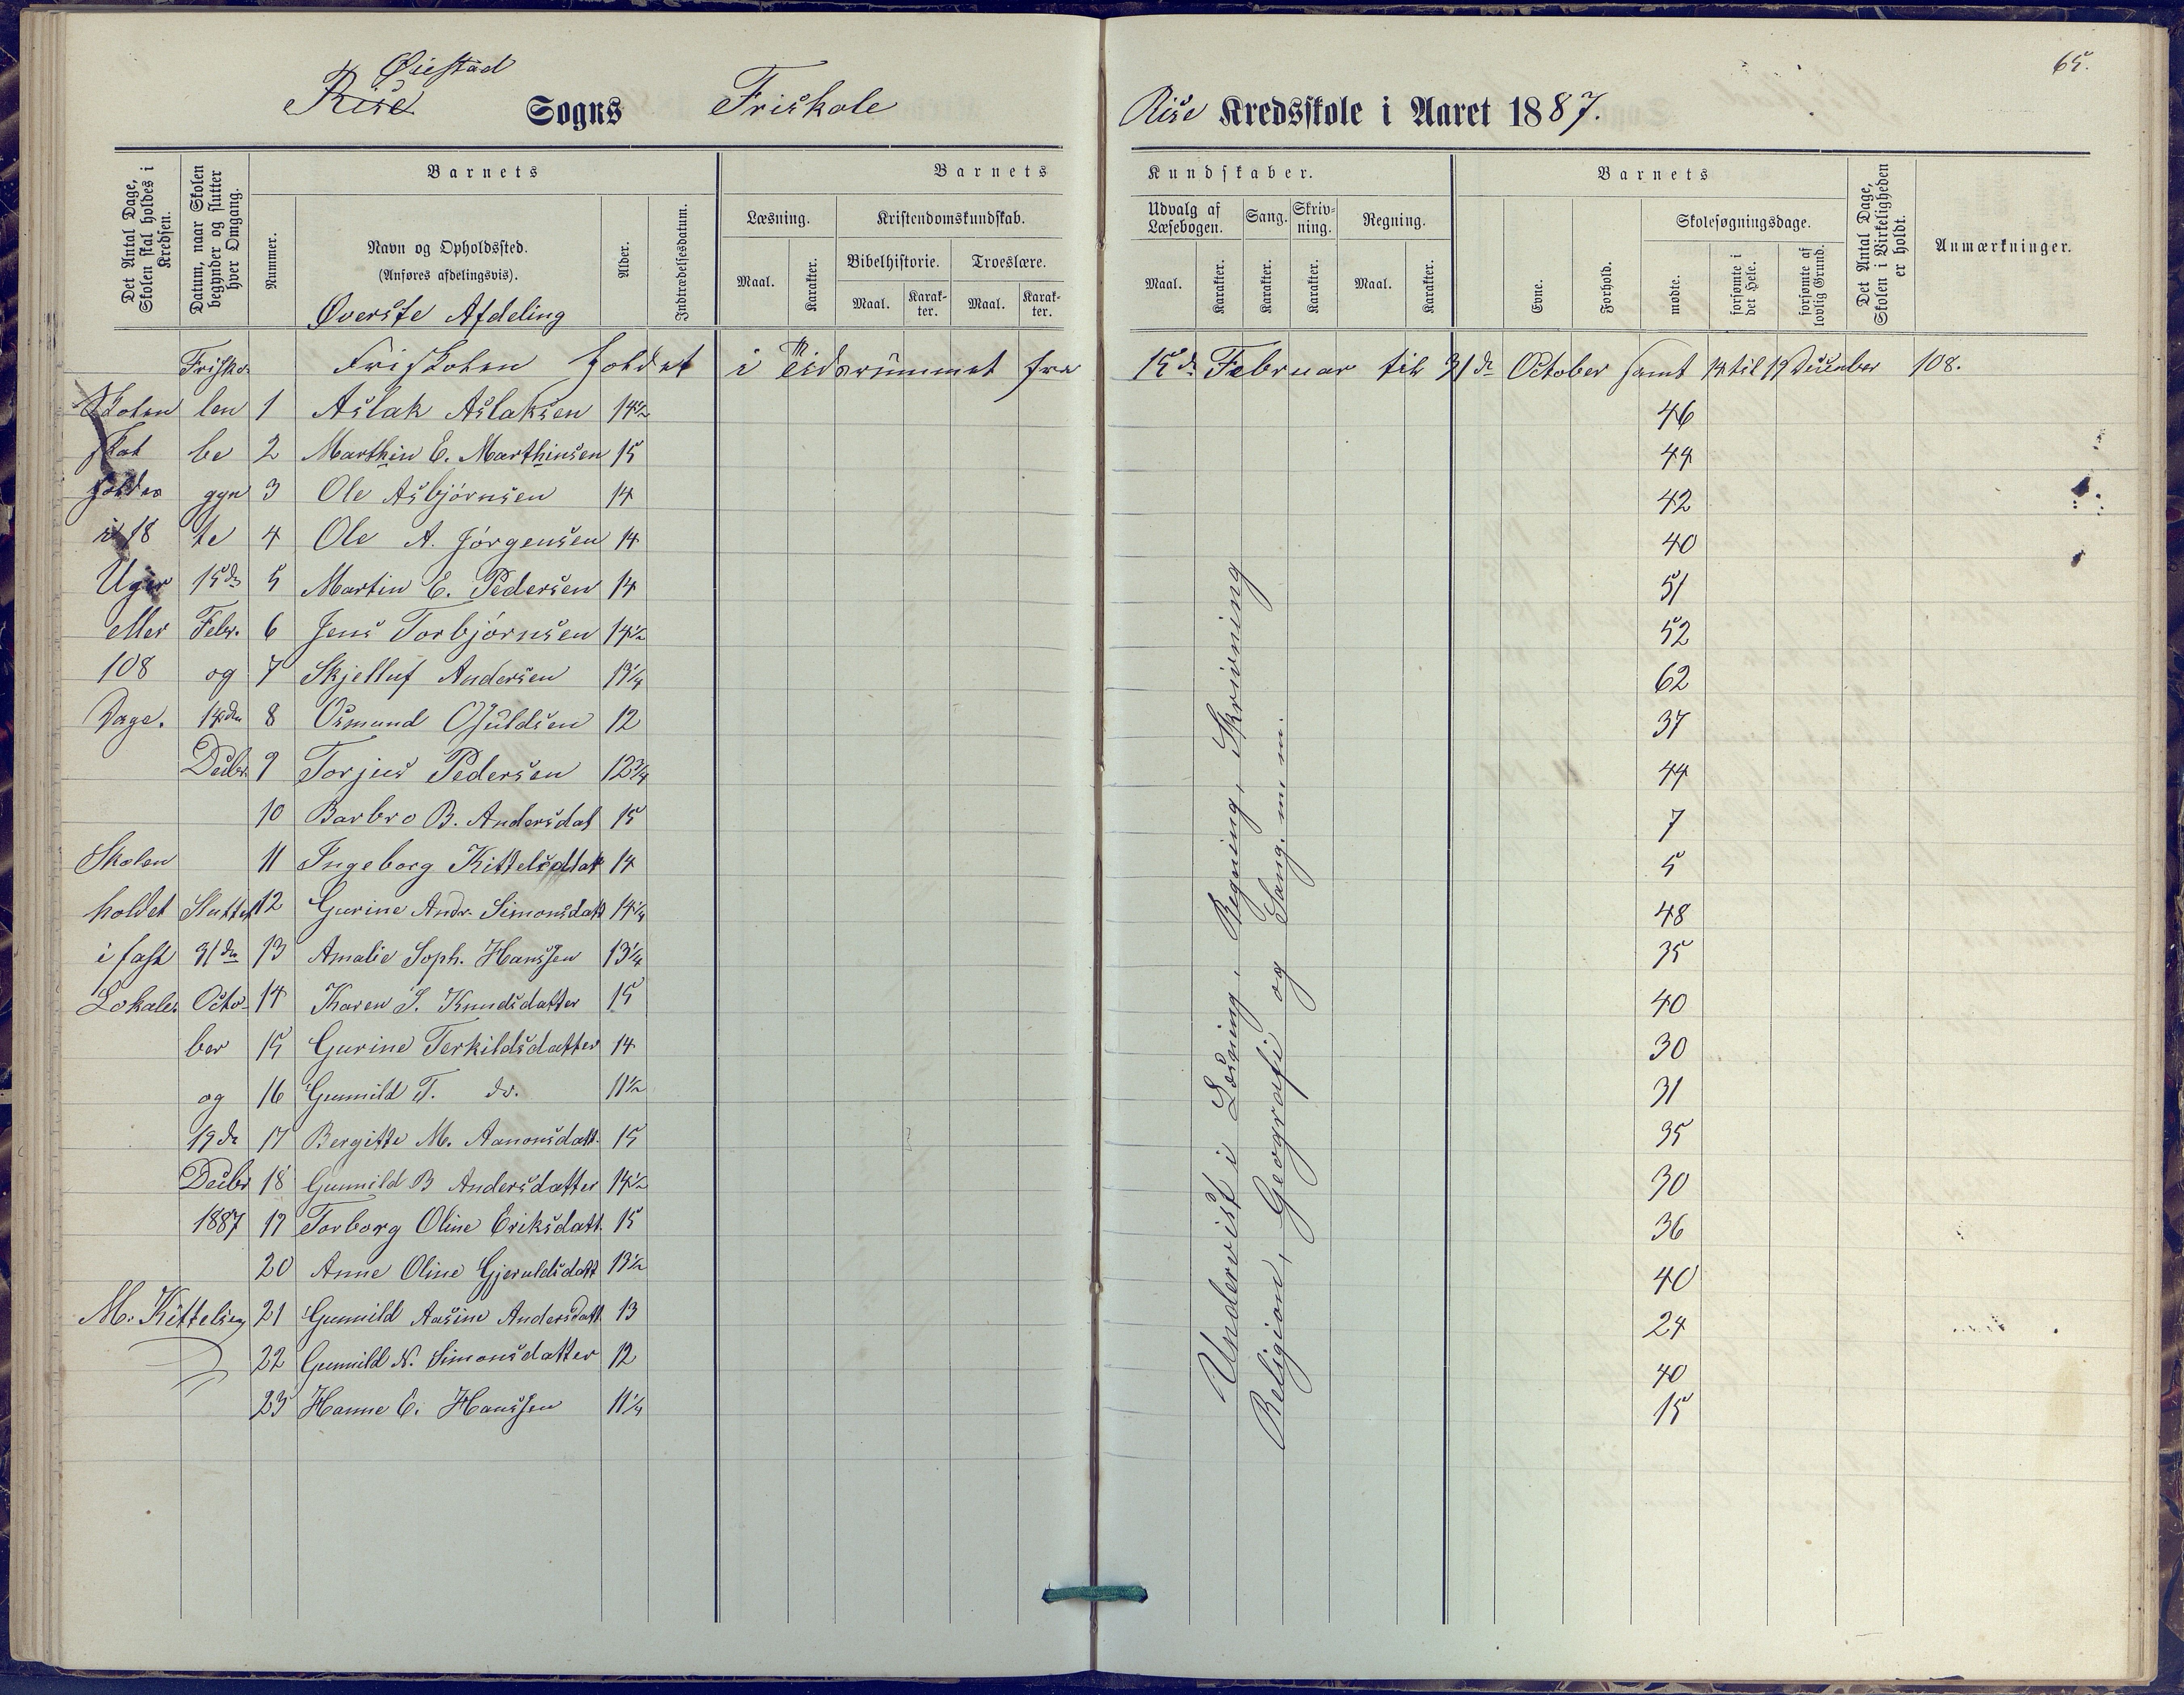 Øiestad
Rise Sogns Friskole Rise Kredsskole i Aaret 1887.
65.
Det Antal Dage, Skolen skal holdes i Kredsen.
Datum, naar Skolen begynder og slutter hver Omgang.
Nummer.
Barnets
Navn og Opholdssted.
(Anføres afdelingsvis).
Øverste Afdeling
Alder.
Indtrædelsesdatum.
Barnets Kundskaber.
Læsning.
Maal.
Karakter.
Kristendomskundskab.
Bibelhistorie.
Maal.
Karakter.
Troeslære.
Maal.
Karakter.
Udvalg af Læsebogen.
Maal.
Karakter.
Sang.
Karakter.
Skrivning.
Karakter.
Regning.
Maal.
Karakter.
Barnets
Evne.
Forhold.
Skolesøgningsdage.
mødte.
forsømte i det Hele.
forsømte af lovlig Grund.
Det Antal Dage, Skolen i Virkeligheden er holdt.
Anmærkninger.
Frisko- Friskolen holdet i Tidsrummet fra 15de Februar til 31de October samt 14 til 19 December 108.
Skolen len 1 Aslak Aslaksen 14½ 46
skal be 2 Marthin E. Marthinsen 15 44
holdes gyn 3 Ole Asbjørnsen 14 42
i 18 te 4 Ole A. Jørgensen 14 40
Uger 15de 5 Martin E. Pedersen 14 51
eller Febr. 6 Jens Torbjørnsen 14½ 52
108 og 7 Skjelluf Andersen 13¼ 62
Dage. 14den 8 Osmund Osuldsen 12 37
Decbr. 9 Torjus Pedersen 12¾ 44
10 Barbro B. Andersdat 15 7
Skolen 11 Ingeborg Kittelsdtat 14 5
holdet Sluttet 12 Gurine Andr. Simonsdatt 14¼ 48
i fast 31de 13 Amalie Soph. Hanssen 13¼ 35
Lokale. Octo- 14 Karen S. Knudsdatter 15 40
ber 15 Gurine Terkildsdatter 14 30
og 16 Gunnild T. do. 11½ 31
19de 17 Bergitte M. Aanonsdatt. 15 35
Decbr 18 Gunnild B Andersdatter 14½ 30
1887 19 Torborg Oline Eriksdatt. 15 36
20 Anne Oline Gjeruldsdatt 13½ 40
M. Kittelsen 21 Gunnild Aasine Andersdatt. 13 24
22 Gunnild N. Simonsdatter 12 40
23 Hanne E. Hanssen 11¼ 15
Undervist i Læsning, Regning, Skrivning
Religion, Geografi og Sang. m m.